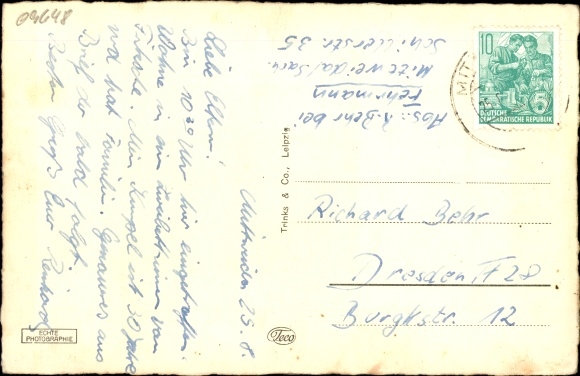 09648
Mittweida 25. 8.
Liebe Eltern!
Bin 10 30 Uhr hier eingetroffen.
Wohne in ein Zweibettzimmer von
Fabrik. Mein Kumpel ist 30 Jahre
und hat Familie. Genaueres aus
Brief der bald folgt.
Besten Gruß Euer Reinhard
ECHTE
PHOTOGRAPHIE
Trinks & Co., Leipzig
Teco
Abs.: R. Behr bei
Fehrmann
Mittweida/Sach
Schillerstr. 35
10
5
DEUTSCHE
DEMOKRATISCHE REPUBLIK
MITT
Richard Behr
Dresden A 28
Burgkstr. 12